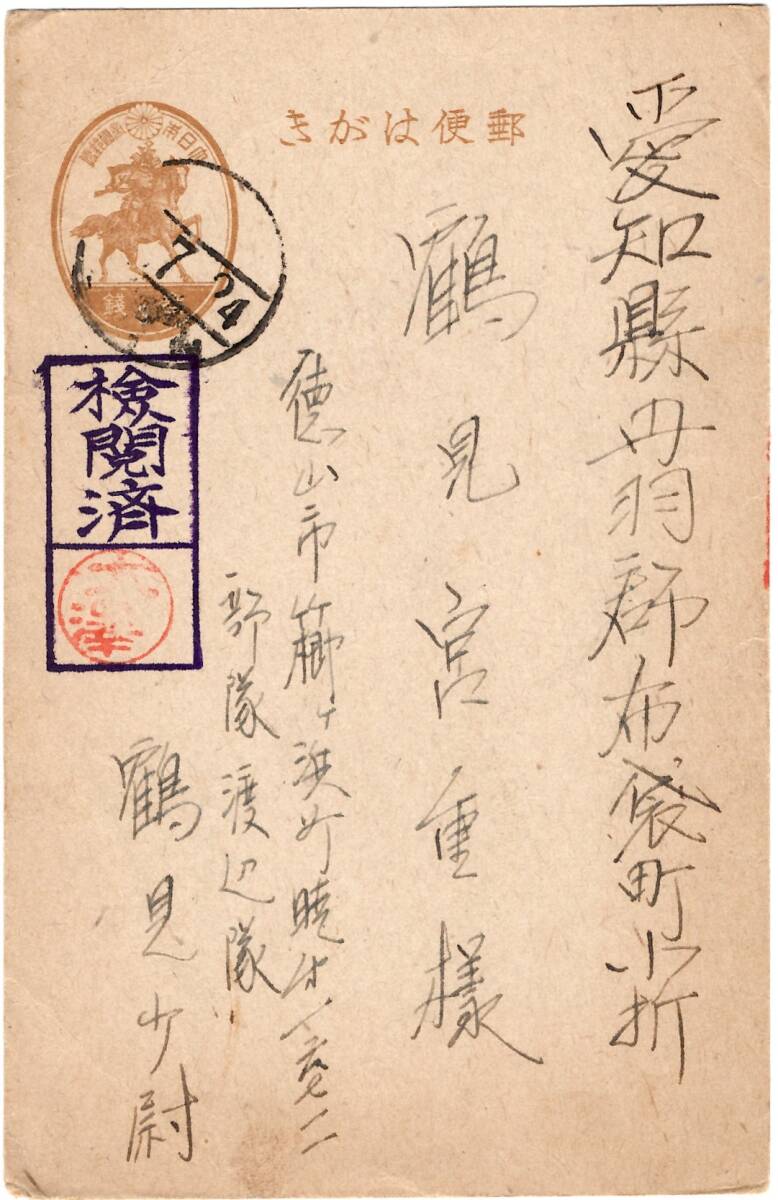 郵便はがき
愛知縣丹羽郡布袋町小折
鶴見宮重様
徳山市櫛ヶ浜町暁
部隊渡辺隊
鶴見少尉
大日本帝國郵便
錢
7 24
検閲済